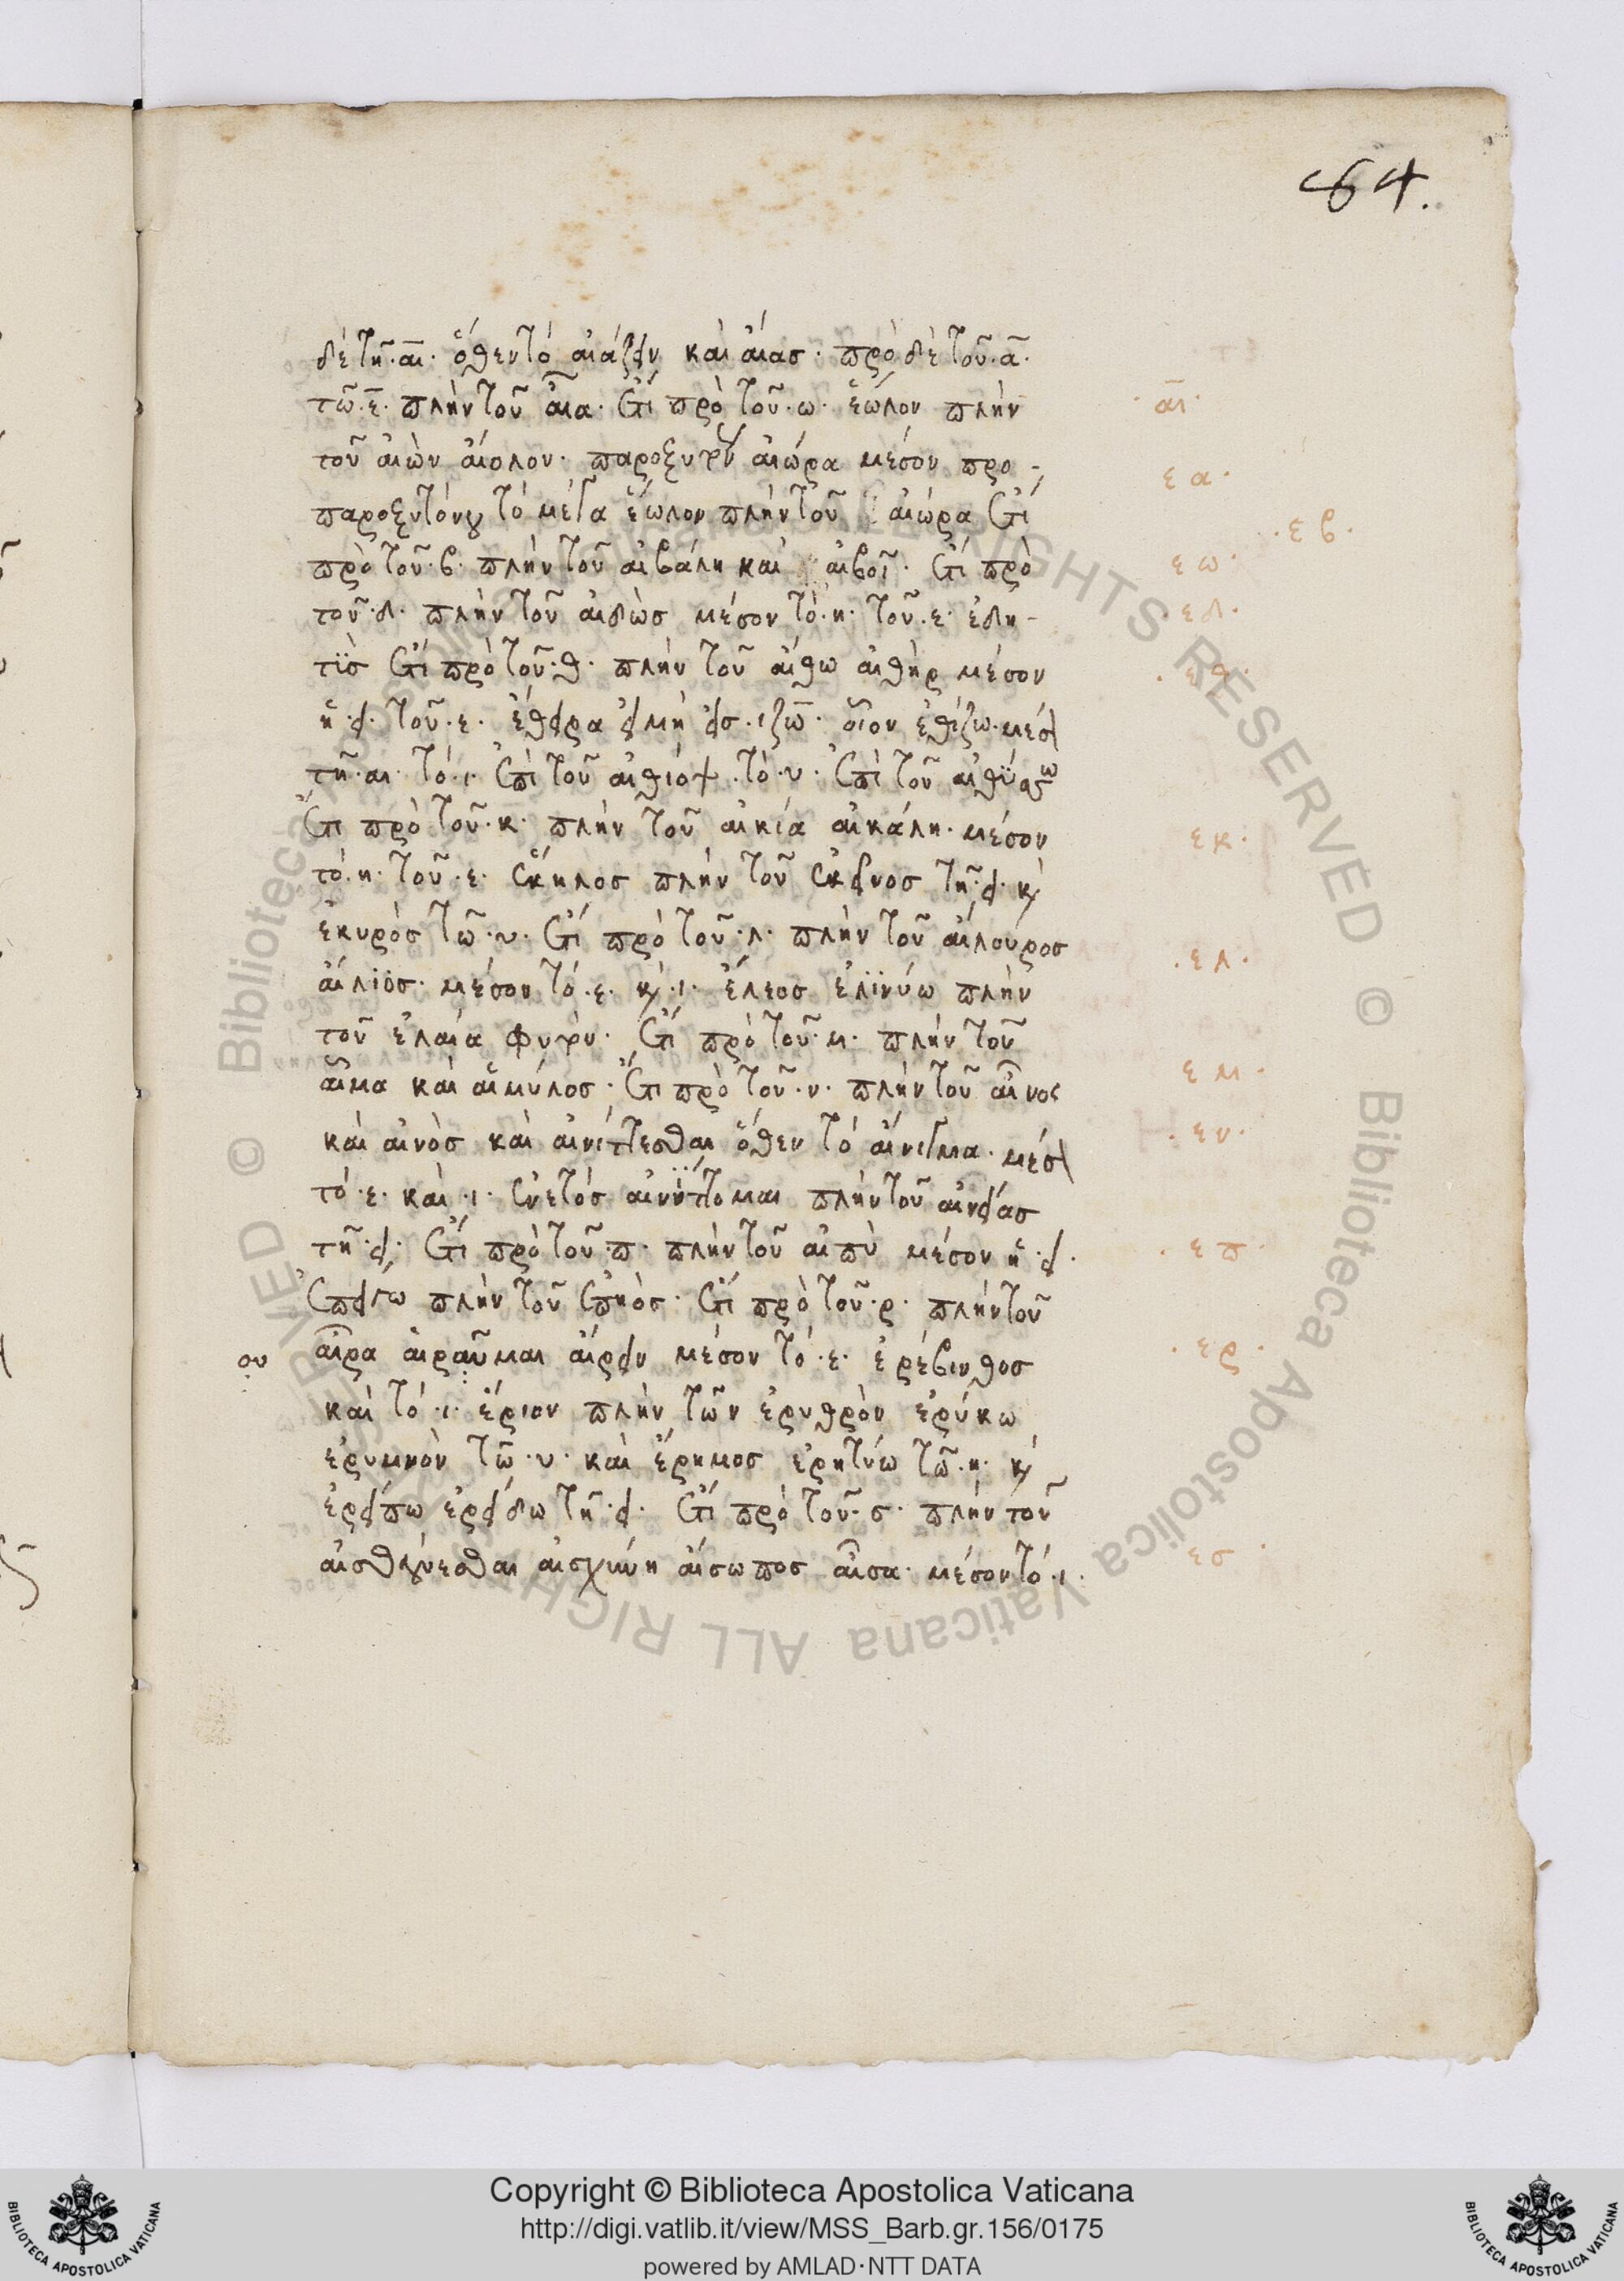 64.
δὲ τῆ·αι· ὅθεν τὸ αἰάζειν καὶ αἴας· πρὸ δὲ τοῦ·α·
τῶ·ε· πλὴν τοῦ αἶα· ἔτι πρὸ τοῦ·ω· ἕωλον πλὴν
τοῦ αἰὼν αἴολον· αἰώρα μέσον προ-
τὸ μέγα ἕωλον πλὴν τοῦ αἰώρα ἔτι
πρὸ τοῦ·β· πλὴν τοῦ αἰβάλη καὶ αἰβοῖ· ἔτι πρὸ
τοῦ·δ· πλὴν τοῦ αἰδὼς μέσον τὸ·η· τοῦ·ε· ἐδη-
τϊς ἔτι πρὸ τοῦ·θ· πλὴν τοῦ αἴθω αἰθὴρ μέσον
ἡ·ει· τοῦ·ε· ἔθειρα εἰ μὴ εἰς·ιζω· οἷον ἐθίζω·μέσ
τῆ·αι· τὸ·ι· ἐπὶ τοῦ αἰθιόψ·τὸ·υ· ἐπὶ τοῦ
ἔτι πρὸ τοῦ·κ· πλὴν τοῦ αἰκία αἰκάλη·μέσον
τὸ·η· τοῦ·ε· ἕκηλος πλὴν τοῦ ἐκεῖνος τῆ·ει· κ
ἑκυρὸς τῶ·υ· ἔτι πρὸ τοῦ·λ· πλὴν τοῦ αἴλουρος
αἴλϊος· μέσον τὸ·ε· κ·ι· ἔλεος ἐλϊνύω πλὴν
τοῦ ἐλαία φυτὸν· ἔτι πρὸ τοῦ·μ· πλὴν τοῦ
αἷμα καὶ αἱμύλος· ἔτι πρὸ τοῦ·ν· πλὴν τοῦ αἶνος
καὶ αἰνὸς καὶ αἰνίττεσθαι ὅθεν τὸ αἴνιγμα· μέσ
τὸ·ε· καὶ·ι· ἐνετός πλὴν τοῦ αἰνείας
τῆ·ει· ἔτι πρὸ τοῦ·π· πλὴν τοῦ αἰπὺ μέσον ἡ·ει·
ἐπείγω πλὴν τοῦ ἐπηὸς· ἔτι πρὸ τοῦ·ρ· πλὴν τοῦ
ου αἶρα αἱραῦμαι αἴρειν μέσον τὸ·ε· ἐρέβινθος
καὶ τὸ·ι· ἔριον πλὴν τῶν ἐρυθρὸν ἐρύκω
ἐρυμνὸν τῶ·υ· καὶ ἔρημος ἐρητύω τῶ·η· κ
ἐρείπω ἐρείδω τῆ·ει· ἔτι πρὸ τοῦ·σ· πλὴν τοῦ
αἰσθάνεσθαι αἰσχύνη αἴσωπος αἶσα· μέσον τὸ·ι·
·αι·
εα·
·εβ·
εω·
·εδ·
·εθ·
εκ·
·ελ·
εμ·
·εν·
·επ·
·ερ·
εσ·
Copyright © Biblioteca Apostolica Vaticana
http://digi.vatlib.it/view/MSS_Barb.gr.156/0175
powered by AMLAD·NTT DATA
BIBLIOTECA APOSTOLICA VATICANA
BIBLIOTECA APOSTOLICA VATICANA
© Biblioteca Apostolica Vaticana ALL RIGHTS RESERVED © Biblioteca Apostolica Vaticana ALL RIGHTS RESERVED